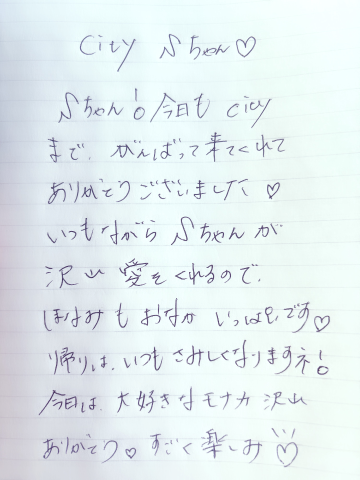 City Sちゃん♡
Sちゃん!今日も City
まで、がんばって来てくれて
ありがとうございました♡
いつもながら Sちゃんが
沢山 愛をくれるので、
ほなみも おなか いっぱいです♡
帰りは、いつも さみしくなりますネ!
今日は、大好きなモナカ 沢山
ありがとう♡ すごく楽しみ♡